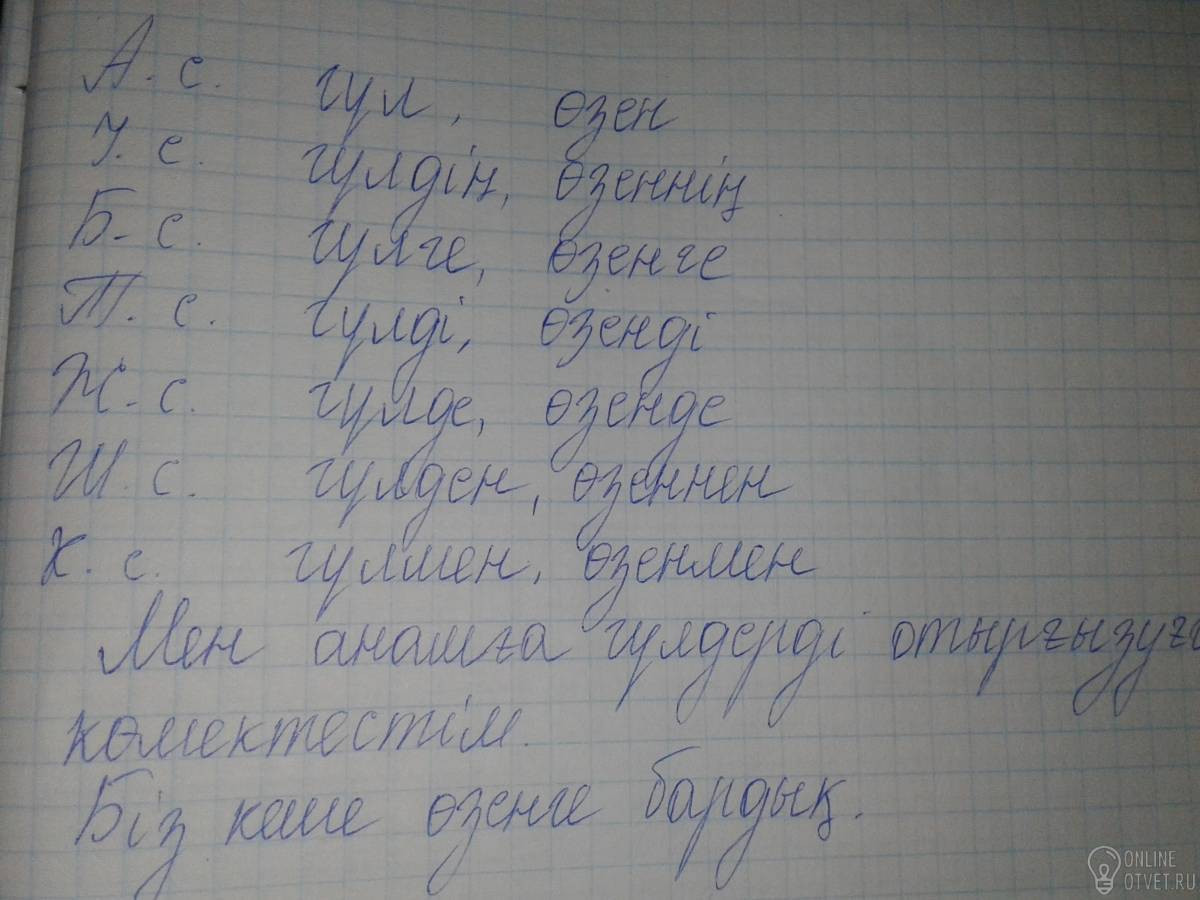 А. с. гүл, өзен
І. с. гүлдің, өзеннің
Б. с. гүлге, өзенге
Т. с. гүлді, өзенді
Ж. с. гүлде, өзенде
Ш. с. гүлден, өзеннен
К. с. гүлмен, өзенмен
Мен анамға гүлдерді отырғызуға
көмектестім.
Біз кеше өзенге бардық.
ONLINE
OTVET.RU